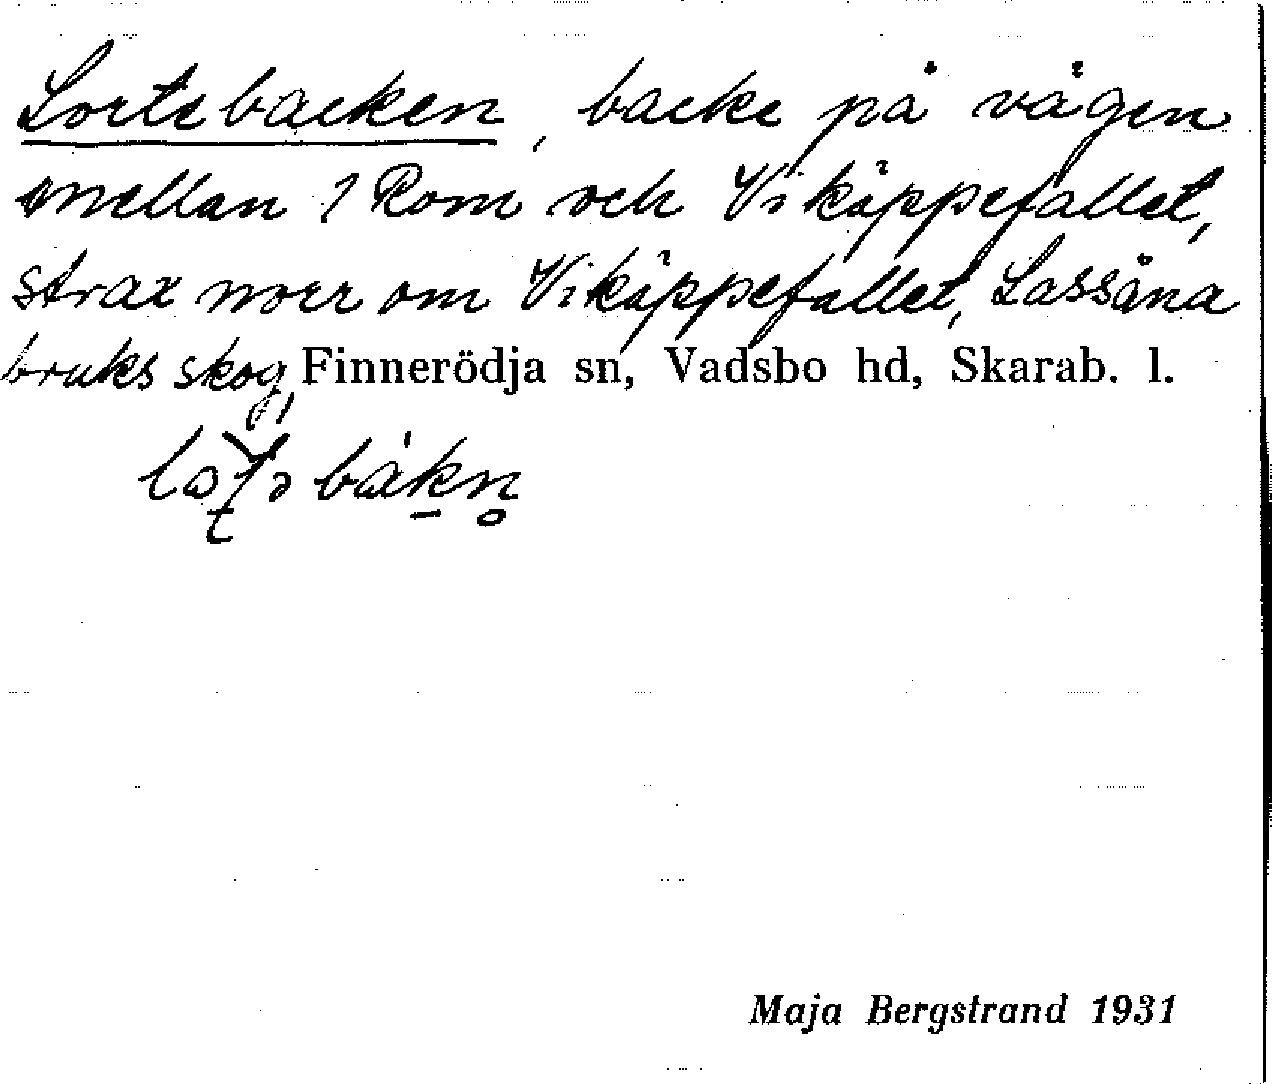 Lortebacken, backe på vägen
mellan 1 Rom och Vikäppefallet,
strax norr om Vikäppefallet, Lassåna
bruks skog, Finnerödja sn, Vadsbo hd, Skarab. l.
Maja Bergstrand 1931